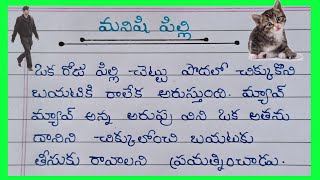 మనిషి పిల్లి
ఒక రోజు పిల్లి చెట్టు పొదలో చిక్కుకొని
బయటికి రాలేక అరుస్తుంది. మ్యావ్
మ్యావ్ అన్న అరుపు విని ఒక అతను
దానిని చిక్కులోంచి బయటకు
తీసుకు రావాలని ప్రయత్నించాడు.